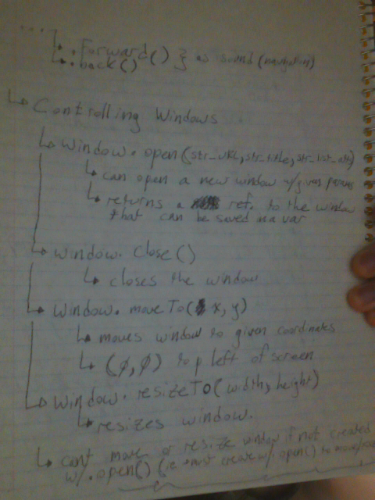 .forward() } as saved (navigation)
.back()
Controlling Windows
window.open(str_URL, str_title, str_
can open a new window w/ given params
returns a ref. to the window
that can be saved in a var
window.close()
closes the window
window.moveTo(x, y)
moves window to given coordinates
(0,0) top left of screen
window.resizeTo(width, height)
resizes window.
can't move or resize window if not created
w/ .open() (ie must create w/ open() to move/